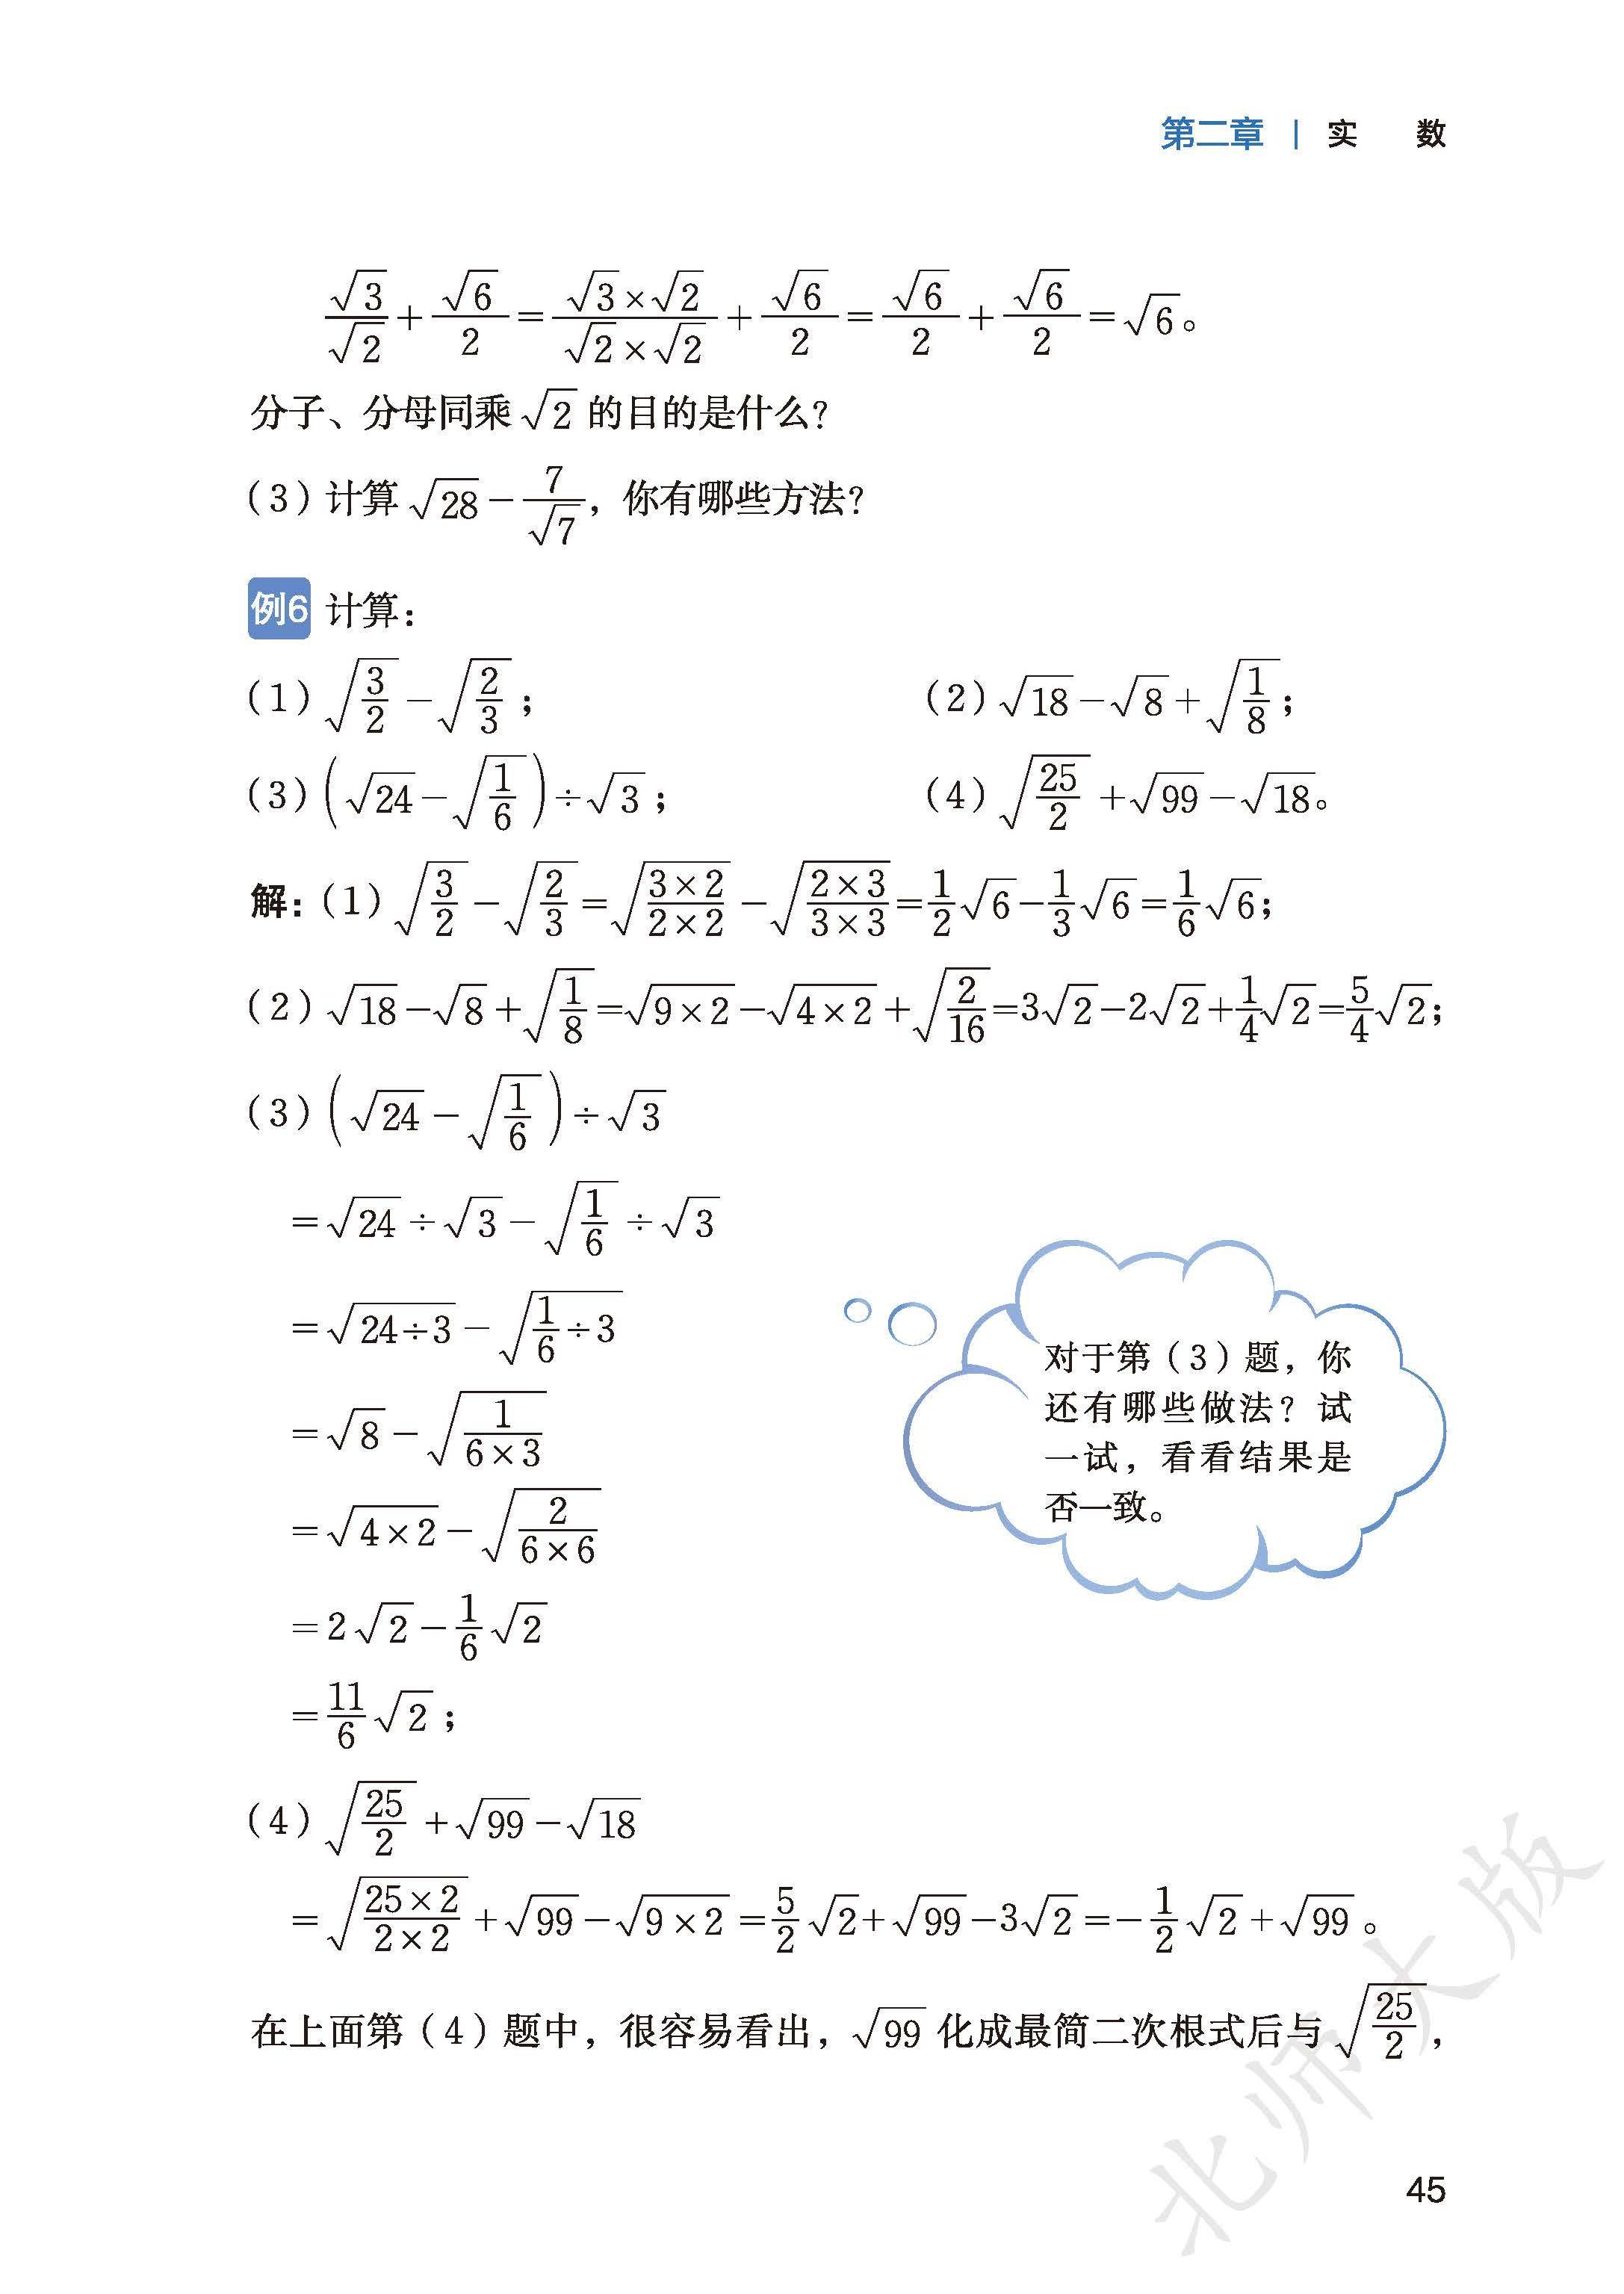 第二章 | 实 数
√3/√2 + √6/2 = (√3×√2)/(√2×√2) + √6/2 = √6/2 + √6/2 = √6。
分子、分母同乘√2 的目的是什么？
(3) 计算 √28 − 7/√7，你有哪些方法？
例6 计算：
(1) √(3/2) − √(2/3)； (2) √18 − √8 + √(1/8)；
(3) (√24 − √(1/6)) ÷ √3； (4) √(25/2) + √99 − √18。
解：(1) √(3/2) − √(2/3) = √((3×2)/(2×2)) − √((2×3)/(3×3)) = 1/2 √6 − 1/3 √6 = 1/6 √6；
(2) √18 − √8 + √(1/8) = √(9×2) − √(4×2) + √(2/16) = 3√2 − 2√2 + 1/4 √2 = 5/4 √2；
(3) (√24 − √(1/6)) ÷ √3
= √24 ÷ √3 − √(1/6) ÷ √3
= √(24÷3) − √(1/6 ÷3)
= √8 − √(1/(6×3))
= √(4×2) − √(2/(6×6))
= 2√2 − 1/6 √2
= 11/6 √2；
对于第（3）题，你
还有哪些做法？试
一试，看看结果是
否一致。
(4) √(25/2) + √99 − √18
= √((25×2)/(2×2)) + √99 − √(9×2) = 5/2 √2 + √99 − 3√2 = −1/2 √2 + √99。
在上面第（4）题中，很容易看出，√99 化成最简二次根式后与 √(25/2)，
45
北师大版